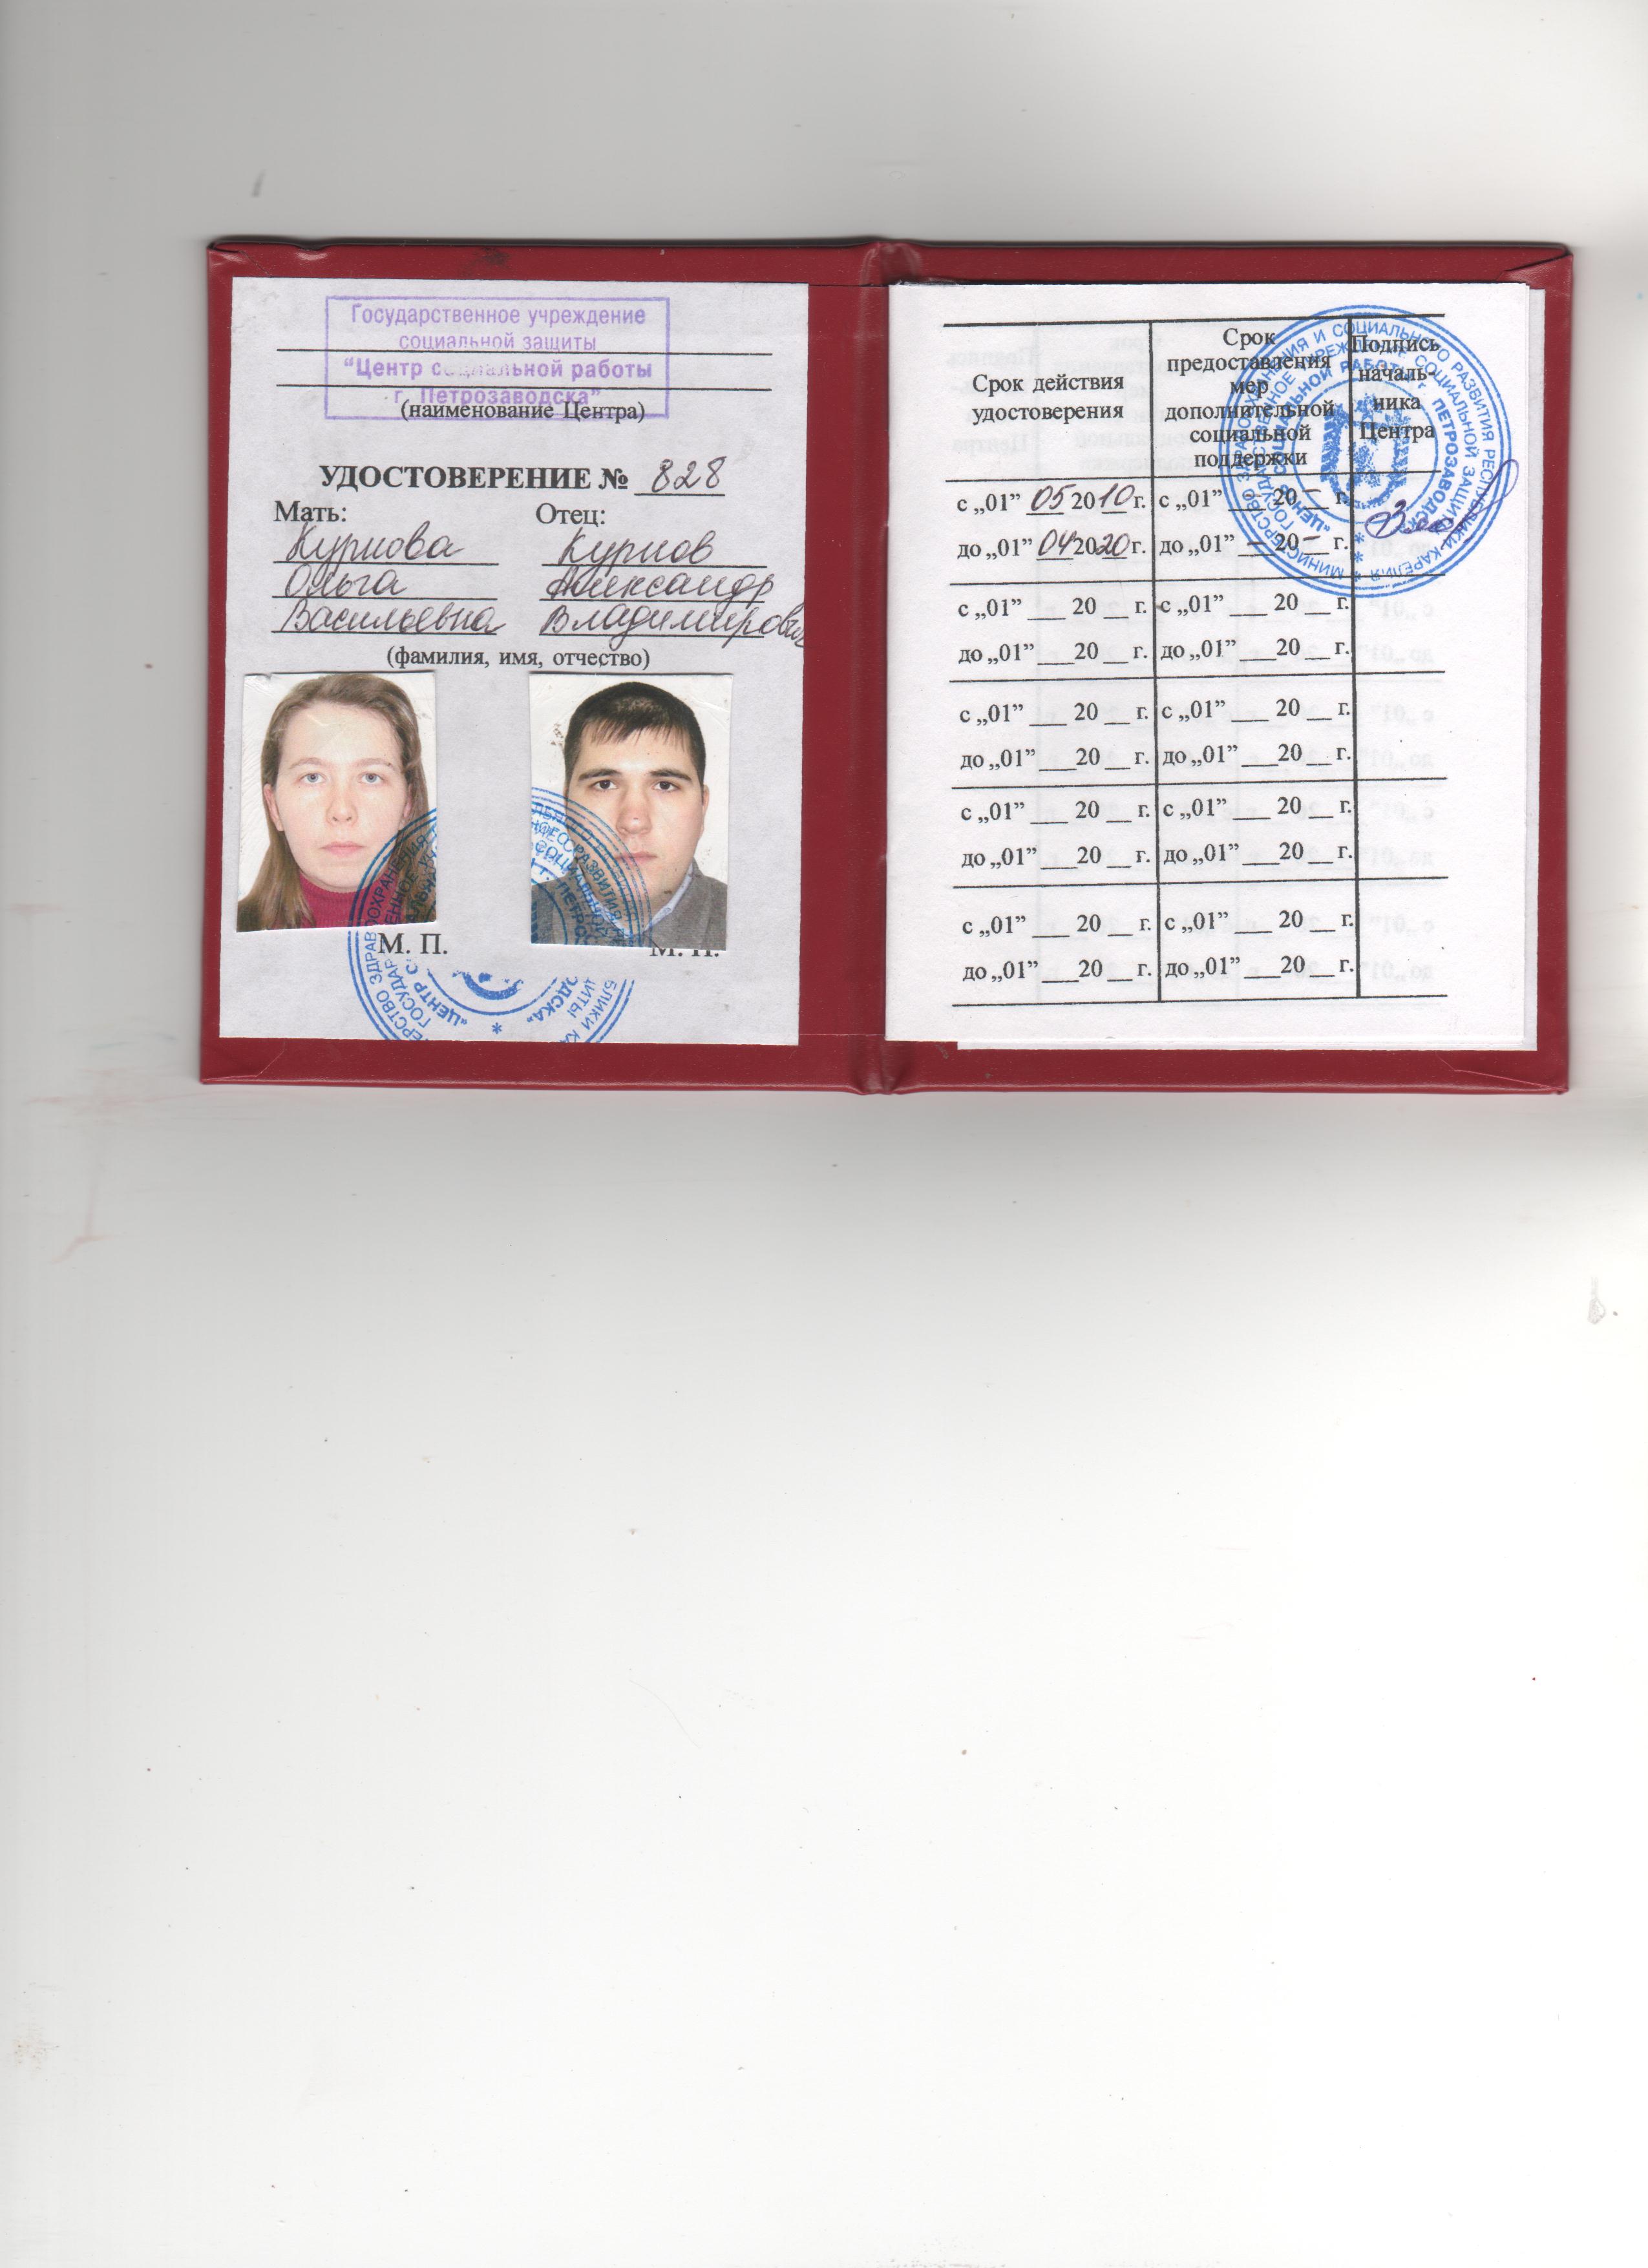 Государственное учреждение
социальной защиты
"Центр социальной работы
г. Петрозаводска"
(наименование Центра)
УДОСТОВЕРЕНИЕ № 828
Мать: Отец:
Ольга Александр
Васильевна Владимирович
(фамилия, имя, отчество)
М. П. М. П.
Срок действия
удостоверения
Срок
предоставления
мер
дополнительной
социальной
поддержки
Подпись
началь-
ника
Центра
с „01” 05 2010 г. с „01” — 20 – г.
до „01” 04 2020 г. до „01” — 20 – г.
с „01” ___ 20 __ г. с „01” ___ 20 __ г.
до „01” ___ 20 __ г. до „01” ___ 20 __ г.
с „01” ___ 20 __ г. с „01” ___ 20 __ г.
до „01” ___ 20 __ г. до „01” ___ 20 __ г.
с „01” ___ 20 __ г. с „01” ___ 20 __ г.
до „01” ___ 20 __ г. до „01” ___ 20 __ г.
с „01” ___ 20 __ г. с „01” ___ 20 __ г.
до „01” ___ 20 __ г. до „01” ___ 20 __ г.
МИНИСТЕРСТВО ЗДРАВООХРАНЕНИЯ И СОЦИАЛЬНОГО РАЗВИТИЯ РЕСПУБЛИКИ КАРЕЛИЯ
ГОСУДАРСТВЕННОЕ УЧРЕЖДЕНИЕ СОЦИАЛЬНОЙ ЗАЩИТЫ
«ЦЕНТР СОЦИАЛЬНОЙ РАБОТЫ г. ПЕТРОЗАВОДСКА»